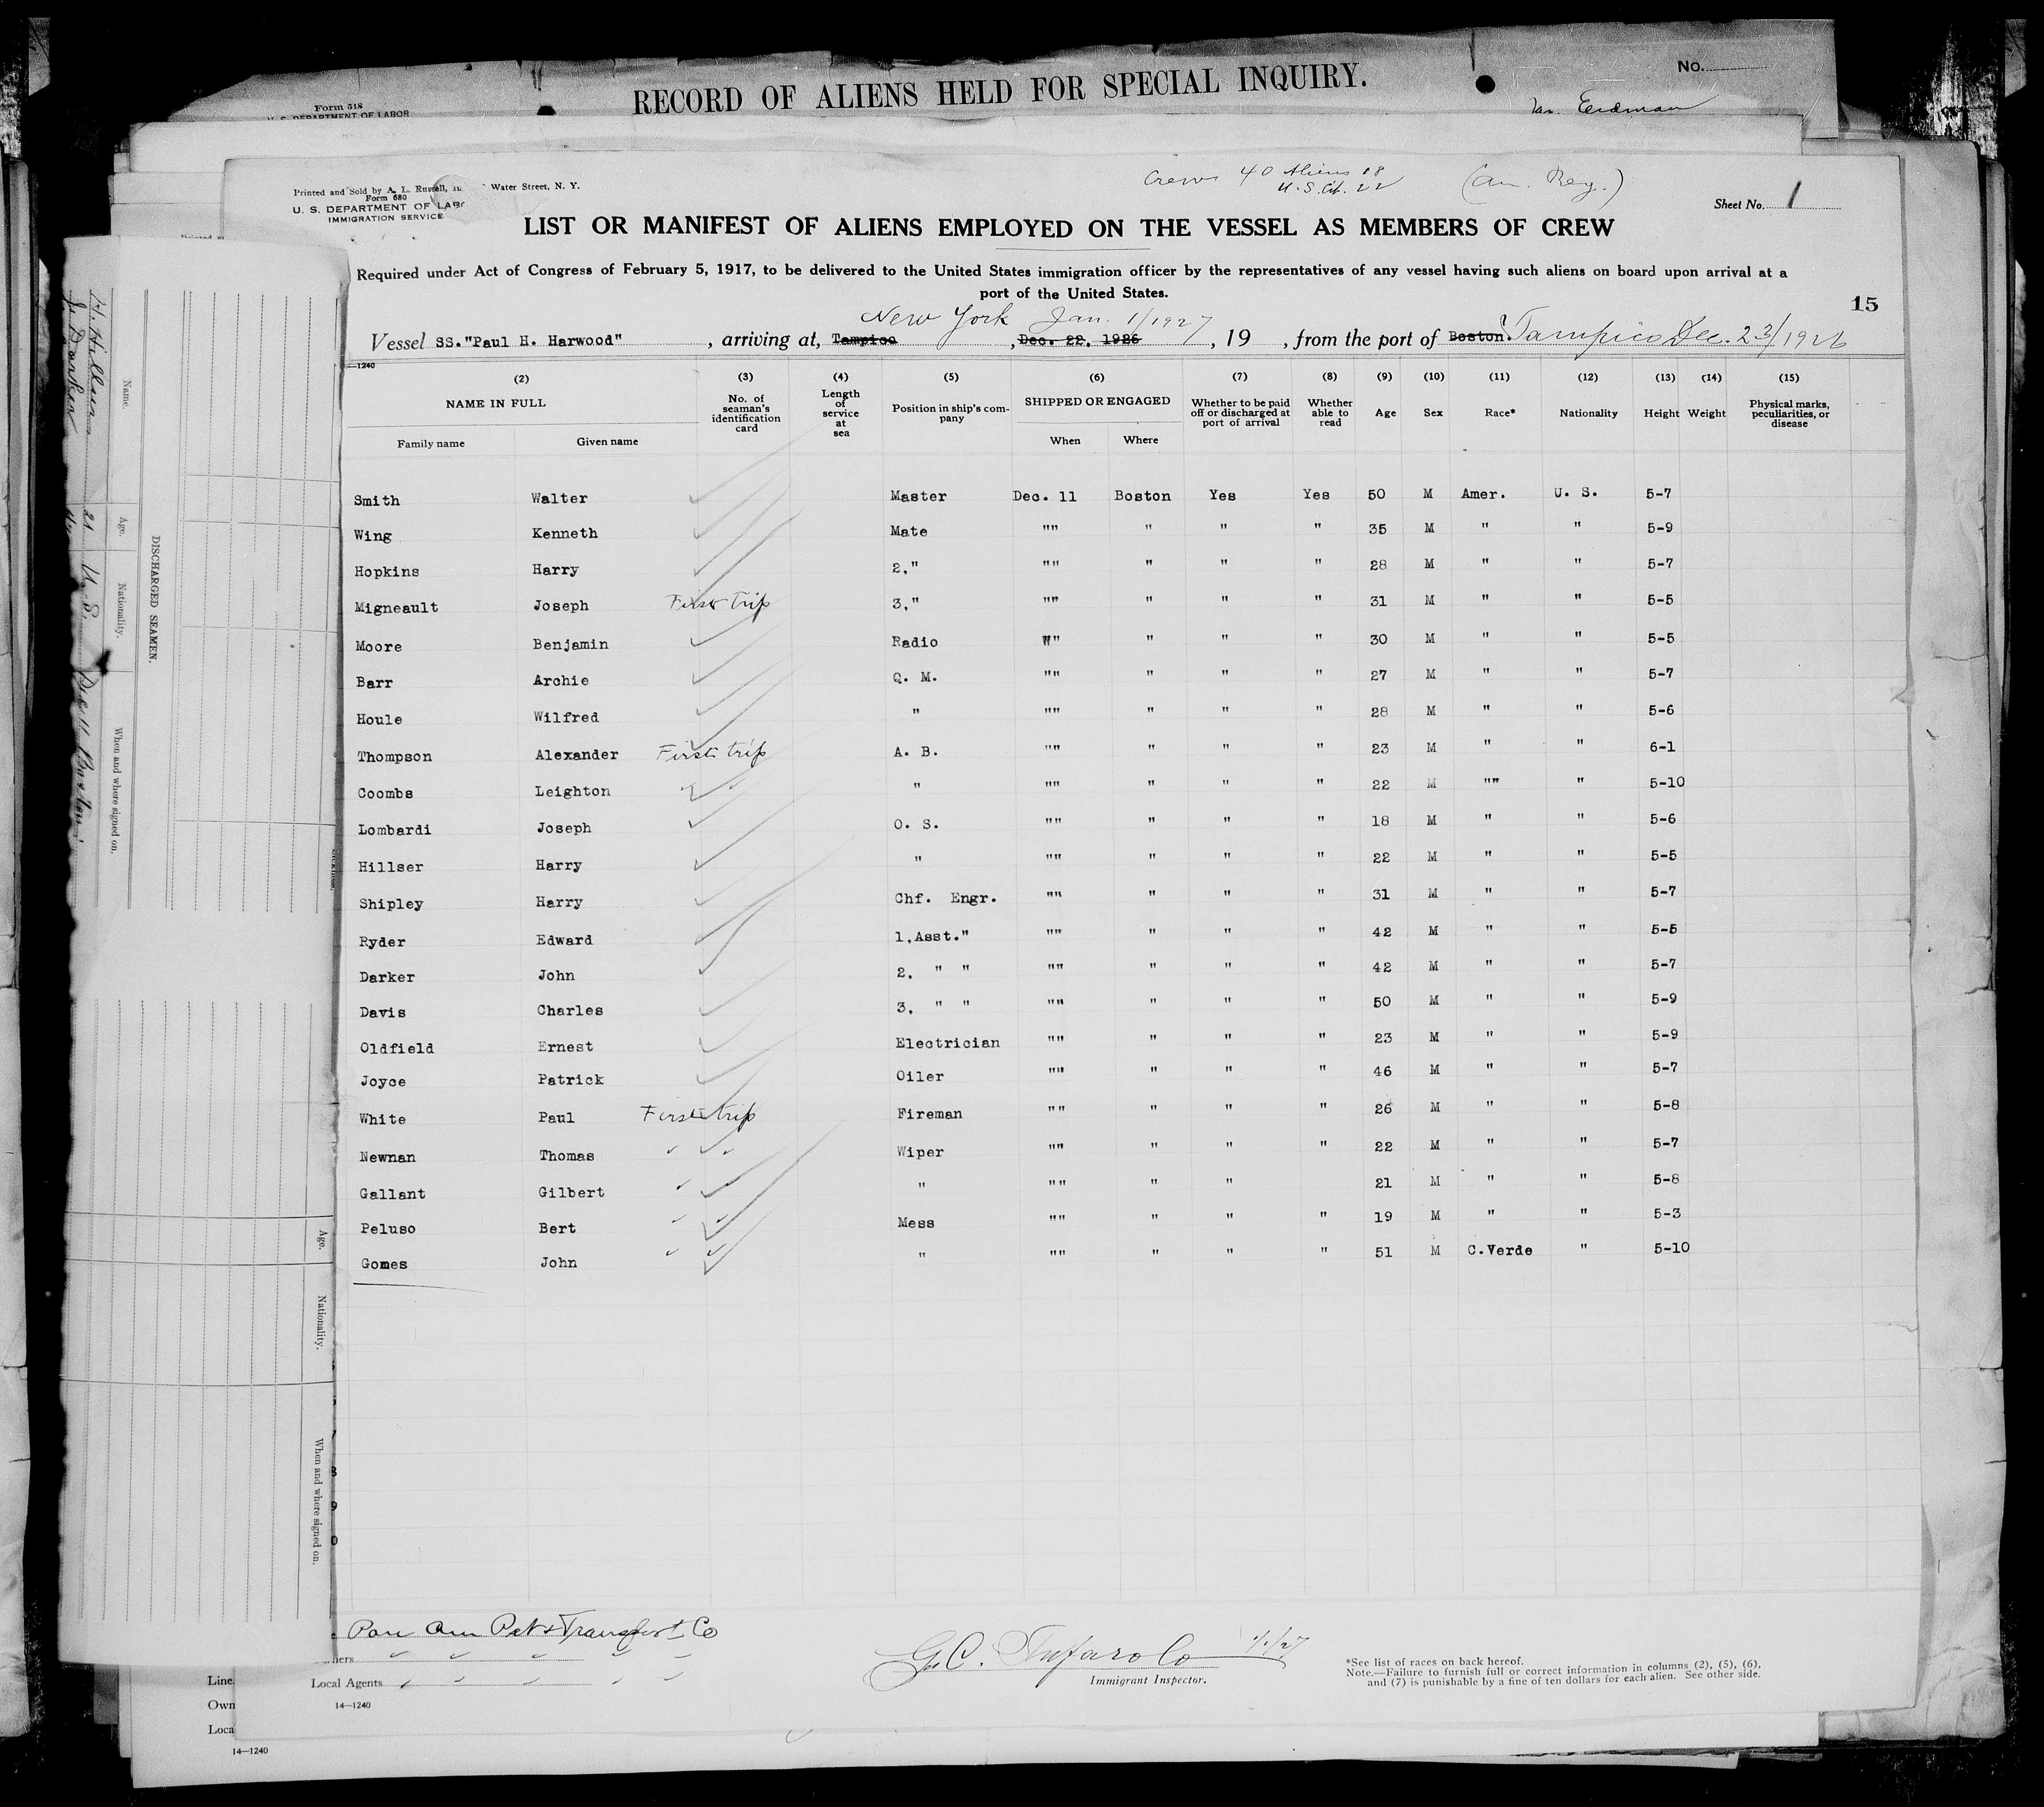 RECORD OF ALIENS HELD FOR SPECIAL INQUIRY.
No.
Form 518
U. S. DEPARTMENT OF LABOR
Eerdman
Crew 40 Aliens 18
U.S. Cit. 22
(Am. Reg.)
Printed and Sold by A. L. Russell, Water Street, N. Y.
Form 680
U. S. DEPARTMENT OF LABO
IMMIGRATION SERVICE
Sheet No. 1
LIST OR MANIFEST OF ALIENS EMPLOYED ON THE VESSEL AS MEMBERS OF CREW
Required under Act of Congress of February 5, 1917, to be delivered to the United States immigration officer by the representatives of any vessel having such aliens on board upon arrival at a
port of the United States.
15
New York Jan. 1/1927
Vessel SS. "Paul H. Harwood" , arriving at, Tampico , Dec. 22, 1926 , 19 , from the port of Boston. Tampico Dec. 23/1926
1240
(2) (3) (4) (5) (6) (7) (8) (9) (10) (11) (12) (13) (14) (15)
NAME IN FULL No. of seaman's identification card Length of service at sea Position in ship's company SHIPPED OR ENGAGED Whether to be paid off or discharged at port of arrival Whether able to read Age Sex Race* Nationality Height Weight Physical marks, peculiarities, or disease
Family name Given name When Where
Smith Walter Master Dec. 11 Boston Yes Yes 50 M Amer. U. S. 5-7
Wing Kenneth Mate "" " " " 35 M " " 5-9
Hopkins Harry 2." "" " " " 28 M " " 5-7
Migneault Joseph First trip 3." "" " " " 31 M " " 5-5
Moore Benjamin Radio W" " " " 30 M " " 5-5
Barr Archie Q. M. "" " " " 27 M " " 5-7
Houle Wilfred " "" " " " 28 M " " 5-6
Thompson Alexander First trip A. B. "" " " " 23 M " " 6-1
Coombs Leighton " "" " " " 22 M "" " 5-10
Lombardi Joseph O. S. "" " " " 18 M " " 5-6
Hillser Harry " "" " " " 22 M " " 5-5
Shipley Harry Chf. Engr. "" " " " 31 M " " 5-7
Ryder Edward 1.Asst." "" " " " 42 M " " 5-5
Darker John 2. " " "" " " " 42 M " " 5-7
Davis Charles 3. " " "" " " " 50 M " " 5-9
Oldfield Ernest Electrician "" " " " 23 M " " 5-9
Joyce Patrick Oiler "" " " " 46 M " " 5-7
White Paul First trip Fireman "" " " " 26 M " " 5-8
Newnan Thomas " " Wiper "" " " " 22 M " " 5-7
Gallant Gilbert " " "" " " 21 M " " 5-8
Peluso Bert " " Mess "" " " " 19 M " " 5-3
Gomes John " " " "" " " " 51 M C.Verde " 5-10
Pan Am Pet & Transport Co
ners " " " " "
Local Agents " " " " "
14—1240
G.C. Tufarolo 1/1/27
Immigrant Inspector.
*See list of races on back hereof.
Note.—Failure to furnish full or correct information in columns (2), (5), (6),
and (7) is punishable by a fine of ten dollars for each alien. See other side.
Line
Own
Loca
14—1240
DISCHARGED SEAMEN.
Name. Age. Nationality. When and where signed on.
H. Hillser 21 U.S. Dec 11 Boston
J. Darker
Age. Nationality. When and where signed on.